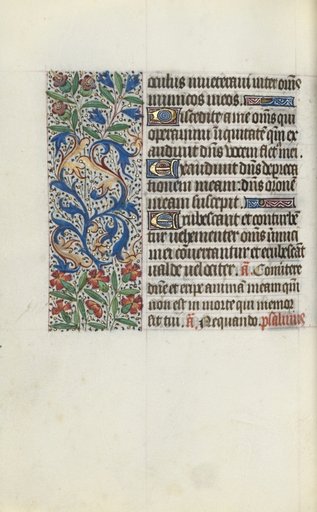 oculus meus inveteravi inter om̄s
inimicos meos.
Discedite a me om̄s qui
operamini iniquitatē qm̄ ex
audivit dn̄s vocem fletꝰ mei.
Exaudivit dn̄s depreca
tionem meam: dn̄s oronē
meam suscepit.
Erubescant et conturbē
tur vehementer om̄s inimi
mei convertantur et erubescāt
valde velociter. a. Convertere
dn̄e et eripe animā meam qm̄
non est in morte qui memor
sit tui. a. Nequando. psalmus